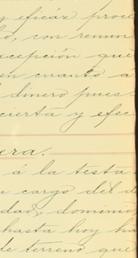 y eficáz proc
o, con renun
xcepción que
en cuanto a
l dinero pues
cierta y efec
era.
á la testa
n cargo del d
das, domini
hasta hoy ha
de terreno que